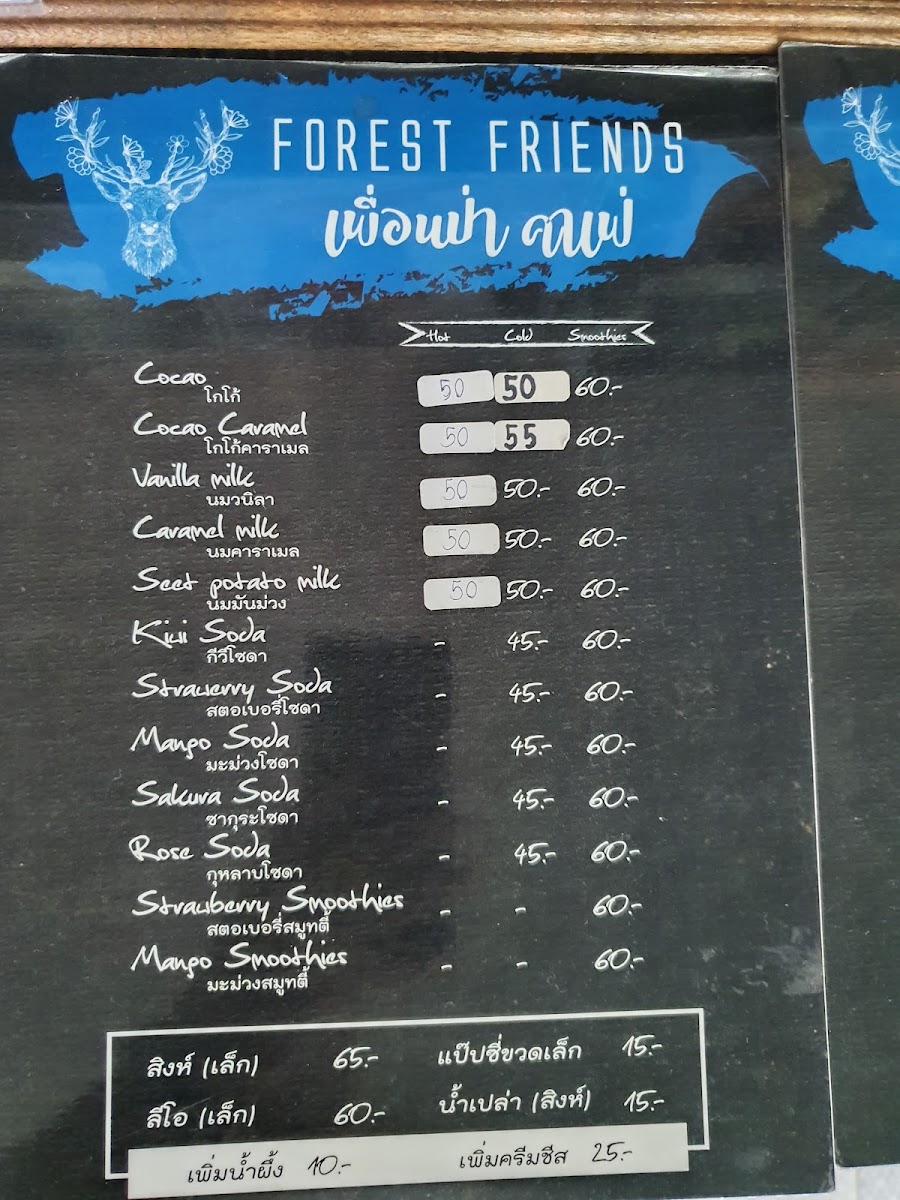 FOREST FRIENDS
เพื่อนป่า คาเฟ่
Hot Cold Smoothies
Cocao 50 50 60.-
โกโก้
Cocao Caramel 50 55 60.-
โกโก้คาราเมล
Vanilla milk 50 50.- 60.-
นมวนิลา
Caramel milk 50 50.- 60.-
นมคาราเมล
Seet potato milk 50 50.- 60.-
นมมันม่วง
Kiwi Soda - 45.- 60.-
กีวีโซดา
Strawerry Soda - 45.- 60.-
สตอเบอรี่โซดา
Mango Soda - 45.- 60.-
มะม่วงโซดา
Sakura Soda - 45.- 60.-
ซากุระโซดา
Rose Soda - 45.- 60.-
กุหลาบโซดา
Strawberry Smoothies - - 60.-
สตอเบอรี่สมูทตี้
Mango Smoothies - - 60.-
มะม่วงสมูทตี้
สิงห์ (เล็ก) 65.- แป๊ปซี่ขวดเล็ก 15.-
ลีโอ (เล็ก) 60.- น้ำเปล่า (สิงห์) 15.-
เพิ่มน้ำผึ้ง 10.- เพิ่มครีมชีส 25.-